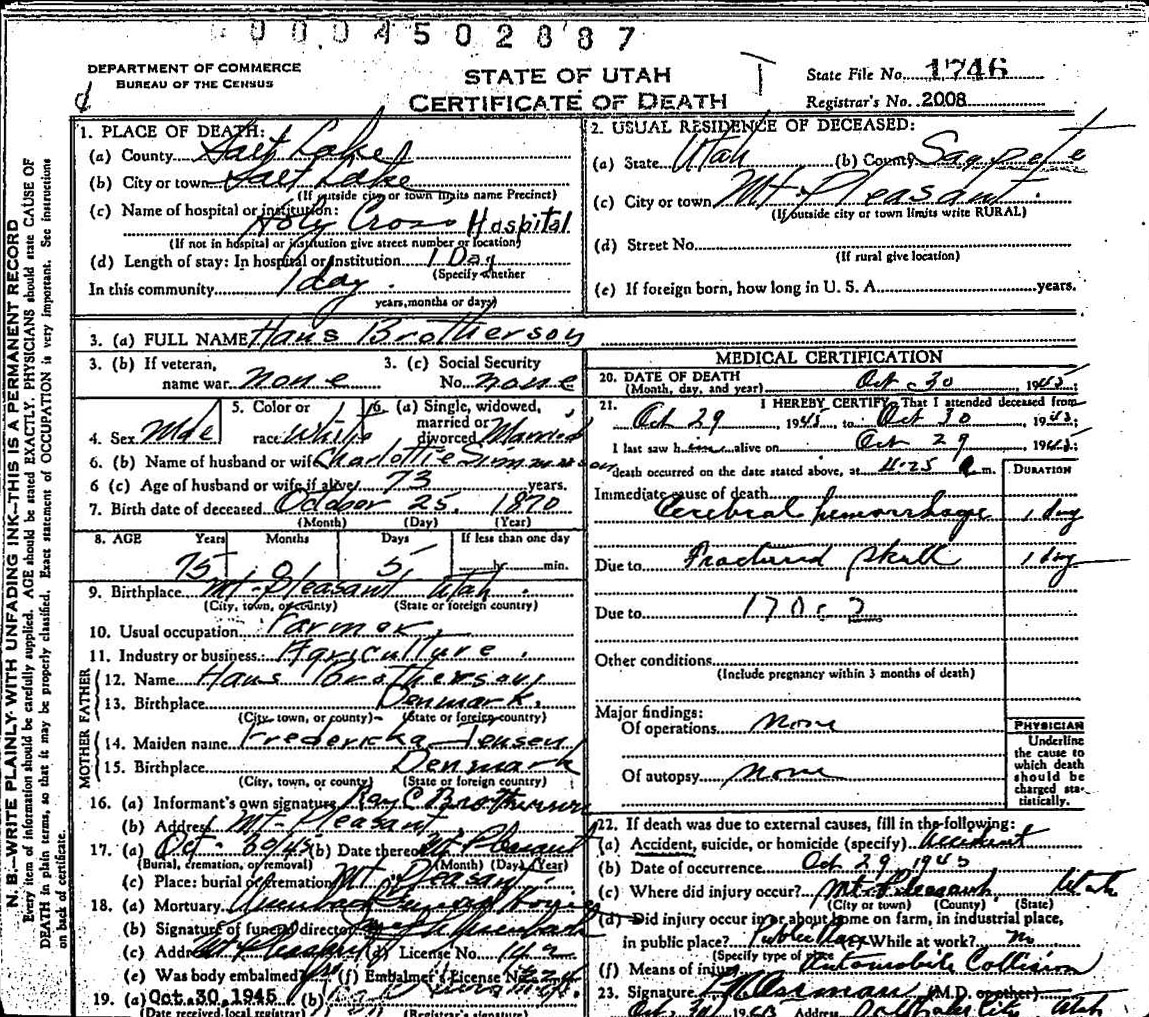 0004502887
DEPARTMENT OF COMMERCE
BUREAU OF THE CENSUS
STATE OF UTAH
CERTIFICATE OF DEATH
State File No. 1746
Registrar's No. 2008
N. B.—WRITE PLAINLY WITH UNFADING INK—THIS IS A PERMANENT RECORD
Every item of information should be carefully supplied. AGE should be stated EXACTLY. PHYSICIANS should state CAUSE OF
DEATH in plain terms, so that it may be properly classified. Exact statement of OCCUPATION is very important. See instructions
on back of certificate.
1. PLACE OF DEATH:
(a) County Salt Lake
(b) City or town Salt Lake
(If outside city or town limits name Precinct)
(c) Name of hospital or institution:
Holy Cross Hospital
(If not in hospital or institution give street number or location)
(d) Length of stay: In hospital or institution 1 Day
(Specify whether
In this community 1 day.
years, months or days)
2. USUAL RESIDENCE OF DECEASED:
(a) State Utah (b) County Sanpete
(c) City or town Mt. Pleasant
(If outside city or town limits write RURAL)
(d) Street No.
(If rural give location)
(e) If foreign born, how long in U. S. A. years.
3. (a) FULL NAME Hans Brotherson
3. (b) If veteran, name war none
3. (c) Social Security No. none
4. Sex Male
5. Color or race White
6. (a) Single, widowed, married or divorced Married
6. (b) Name of husband or wife Charlottie Simmonson
6 (c) Age of husband or wife if alive 73 years.
7. Birth date of deceased October 25, 1870
(Month) (Day) (Year)
8. AGE Years Months Days If less than one day
75 0 5 hr. min.
9. Birthplace Mt-Pleasant Utah.
(City, town, or county) (State or foreign country)
10. Usual occupation Farmer.
11. Industry or business: Agriculture.
FATHER
12. Name Hans Brotherson
13. Birthplace Denmark.
(City, town, or county) (State or foreign country)
MOTHER
14. Maiden name Fredericka Jensen
15. Birthplace Denmark
(City, town, or county) (State or foreign country)
16. (a) Informant's own signature Ray C Brotherson
(b) Address Mt-Pleasant
17. (a) Oct-30/45 (b) Date thereof Mt Pleasant
(Burial, cremation, or removal) (Month) (Day) (Year)
(c) Place: burial or cremation Mt Pleasant
18. (a) Mortuary Funeral Home
(b) Signature of funeral director
(c) Address Mt Pleasant (d) License No. 142
(e) Was body embalmed? yes (f) Embalmer's License No. 224
19. (a) Oct. 30, 1945 (b)
(Date received local registrar) (Registrar's signature)
MEDICAL CERTIFICATION
20. DATE OF DEATH
(Month, day, and year) Oct 30 1945;
21. I HEREBY CERTIFY, That I attended deceased from
Oct 29, 1945, to Oct 30 1945;
I last saw him alive on Oct 29 1945;
death occurred on the date stated above, at 4:25 a m.
DURATION
Immediate cause of death
Cerebral hemorrhage 1 day
Due to Fractured skull 1 day
Due to 170c-2
Other conditions
(Include pregnancy within 3 months of death)
Major findings:
Of operations None
Of autopsy None
PHYSICIAN
Underline
the cause to
which death
should be
charged sta-
tistically.
22. If death was due to external causes, fill in the following:
(a) Accident, suicide, or homicide (specify) Accident
(b) Date of occurrence Oct 29 1945
(c) Where did injury occur? Mt-Pleasant Utah
(City or town) (County) (State)
(d) Did injury occur in or about home on farm, in industrial place,
in public place? Public Place While at work? No
(Specify type of place
(f) Means of injury Automobile Collision
23. Signature (M.D. or other)
Address Salt Lake City Utah